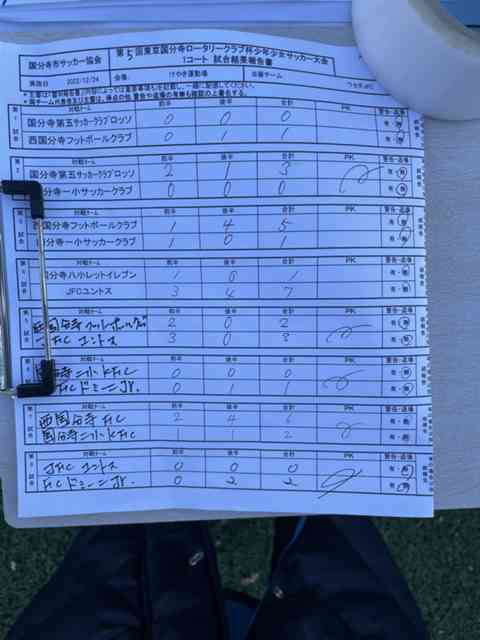 国分寺市サッカー協会 第5回東京国分寺ロータリークラブ杯少年少女サッカー大会
1コート 試合結果報告書
実施日 2022/12/24 会場: けやき運動場
対戦チーム 前半 後半 合計 PK 警告・退場
第1試合 国分寺第五サッカークラブロッソ 0 0 0 有・無
西国分寺フットボールクラブ 0 1 1
対戦チーム 前半 後半 合計 PK 警告・退場
国分寺第五サッカークラブロッソ 2 1 3 有・無
国分寺一小サッカークラブ 0 0 0
対戦チーム 前半 後半 合計 PK 警告・退場
西国分寺フットボールクラブ 1 4 5 有・無
国分寺一小サッカークラブ 1 0 1
対戦チーム 前半 後半 合計 PK 警告・退場
国分寺八小レットイレブン 1 0 1 有・無
JFCユントス 3 4 7
対戦チーム 前半 後半 合計 PK 警告・退場
西国分寺フットボールクラブ 2 0 2 有・無
JFC ユントス 3 0 3
対戦チーム 前半 後半 合計 PK 警告・退場
国分寺二小KFC 0 0 0 有・無
FCドミニJr. 0 1 1
対戦チーム 前半 後半 合計 PK 警告・退場
西国分寺FC 2 4 6 有・無
国分寺二小KFC 1 1 2
対戦チーム 前半 後半 合計 PK 警告・退場
JFC ユントス 0 0 0 有・無
FCドミニJr. 0 2 2